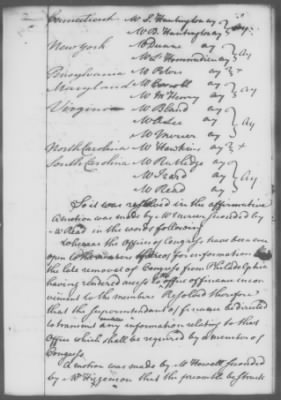 Connecticut Mr S. Huntington ay
Mr B. Huntington ay } ay
New York Mr Duane ay
Mr L'Hommedieu ay } ay
Pensylvania Mr Peters ay } +
Maryland Mr Carroll ay
Mr McHenry ay } ay
Virginia Mr Bland ay
Mr A Lee ay
Mr Mercer ay } ay
North Carolina Mr Hawkins ay } +
South Carolina Mr Rutledge ay
Mr Izard ay
Mr Read ay } ay
So it was resolved in the affirmative
A motion was made by Mr Mercer seconded by
Mr Read in the words following
Whereas the Offices of Congress have been ever
open to the members thereof for information
the late removal of Congress from Philadelphia
having rendered access to the office of finance incon
venient to the members Resolved therefore
that the Superintendant of finance be directed
to transmit any information relating to that
Office which shall be required by a member of
Congress
A motion was made by Mr Howell seconded
by Mr Higginson that the preamble be struck